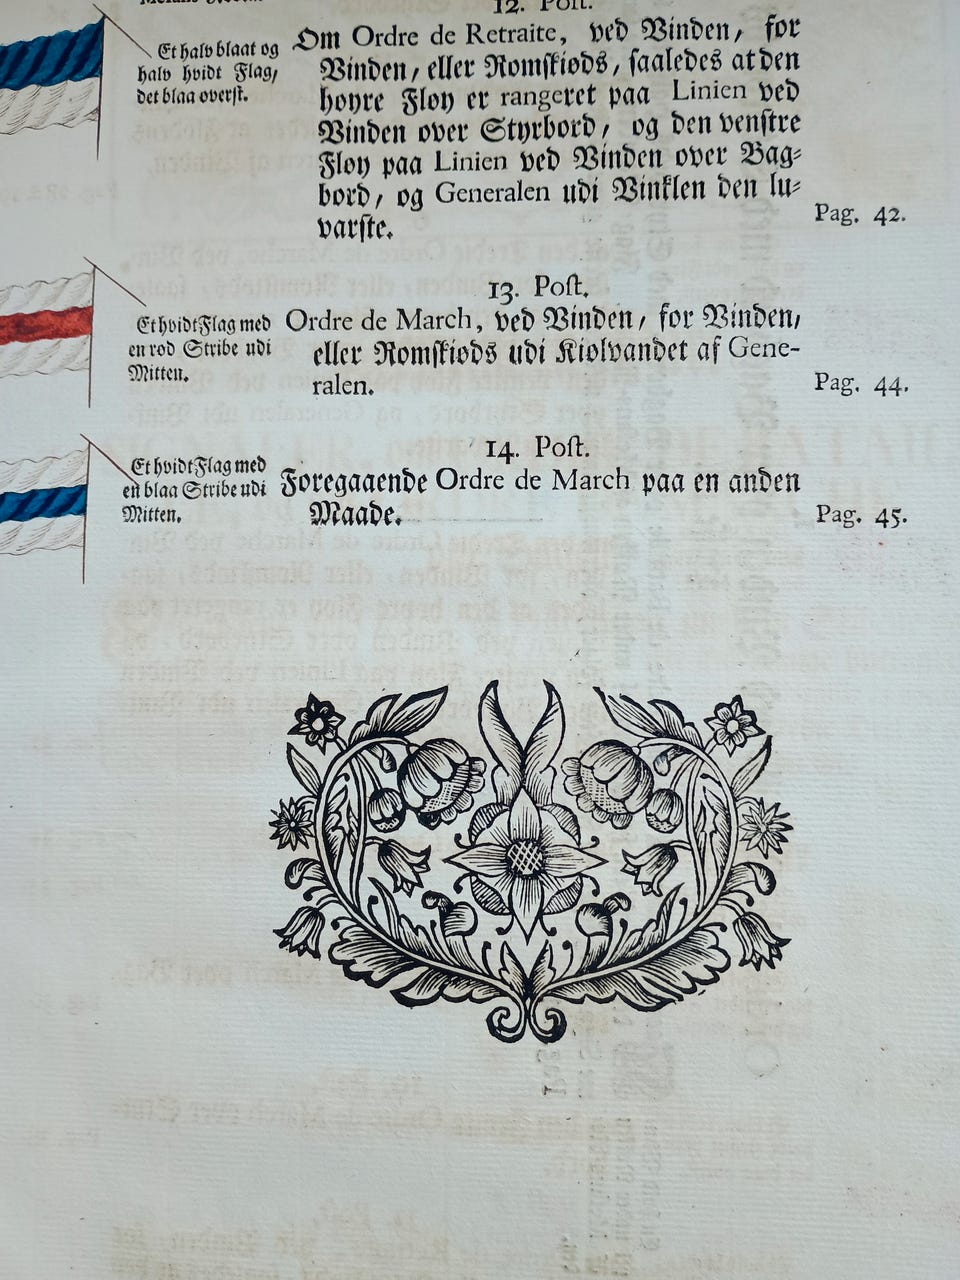 12. Post.
Et halv blaat og
halv hvidt Flag,
det blaa overst.
Om Ordre de Retraite, ved Vinden, for
Vinden, eller Romskiods, saaledes at den
hoyre Floy er rangeret paa Linien ved
Vinden over Styrbord, og den venstre
Floy paa Linien ved Vinden over Bag-
bord, og Generalen udi Vinklen den lu-
varste.
Pag. 42.
13. Post.
Et hvidt Flag med
en rod Stribe udi
Mitten.
Ordre de March, ved Vinden, for Vinden,
eller Romskiods udi Kiolvandet af Gene-
ralen.
Pag. 44.
14. Post.
Et hvidt Flag med
en blaa Stribe udi
Mitten.
Foregaaende Ordre de March paa en anden
Maade.
Pag. 45.